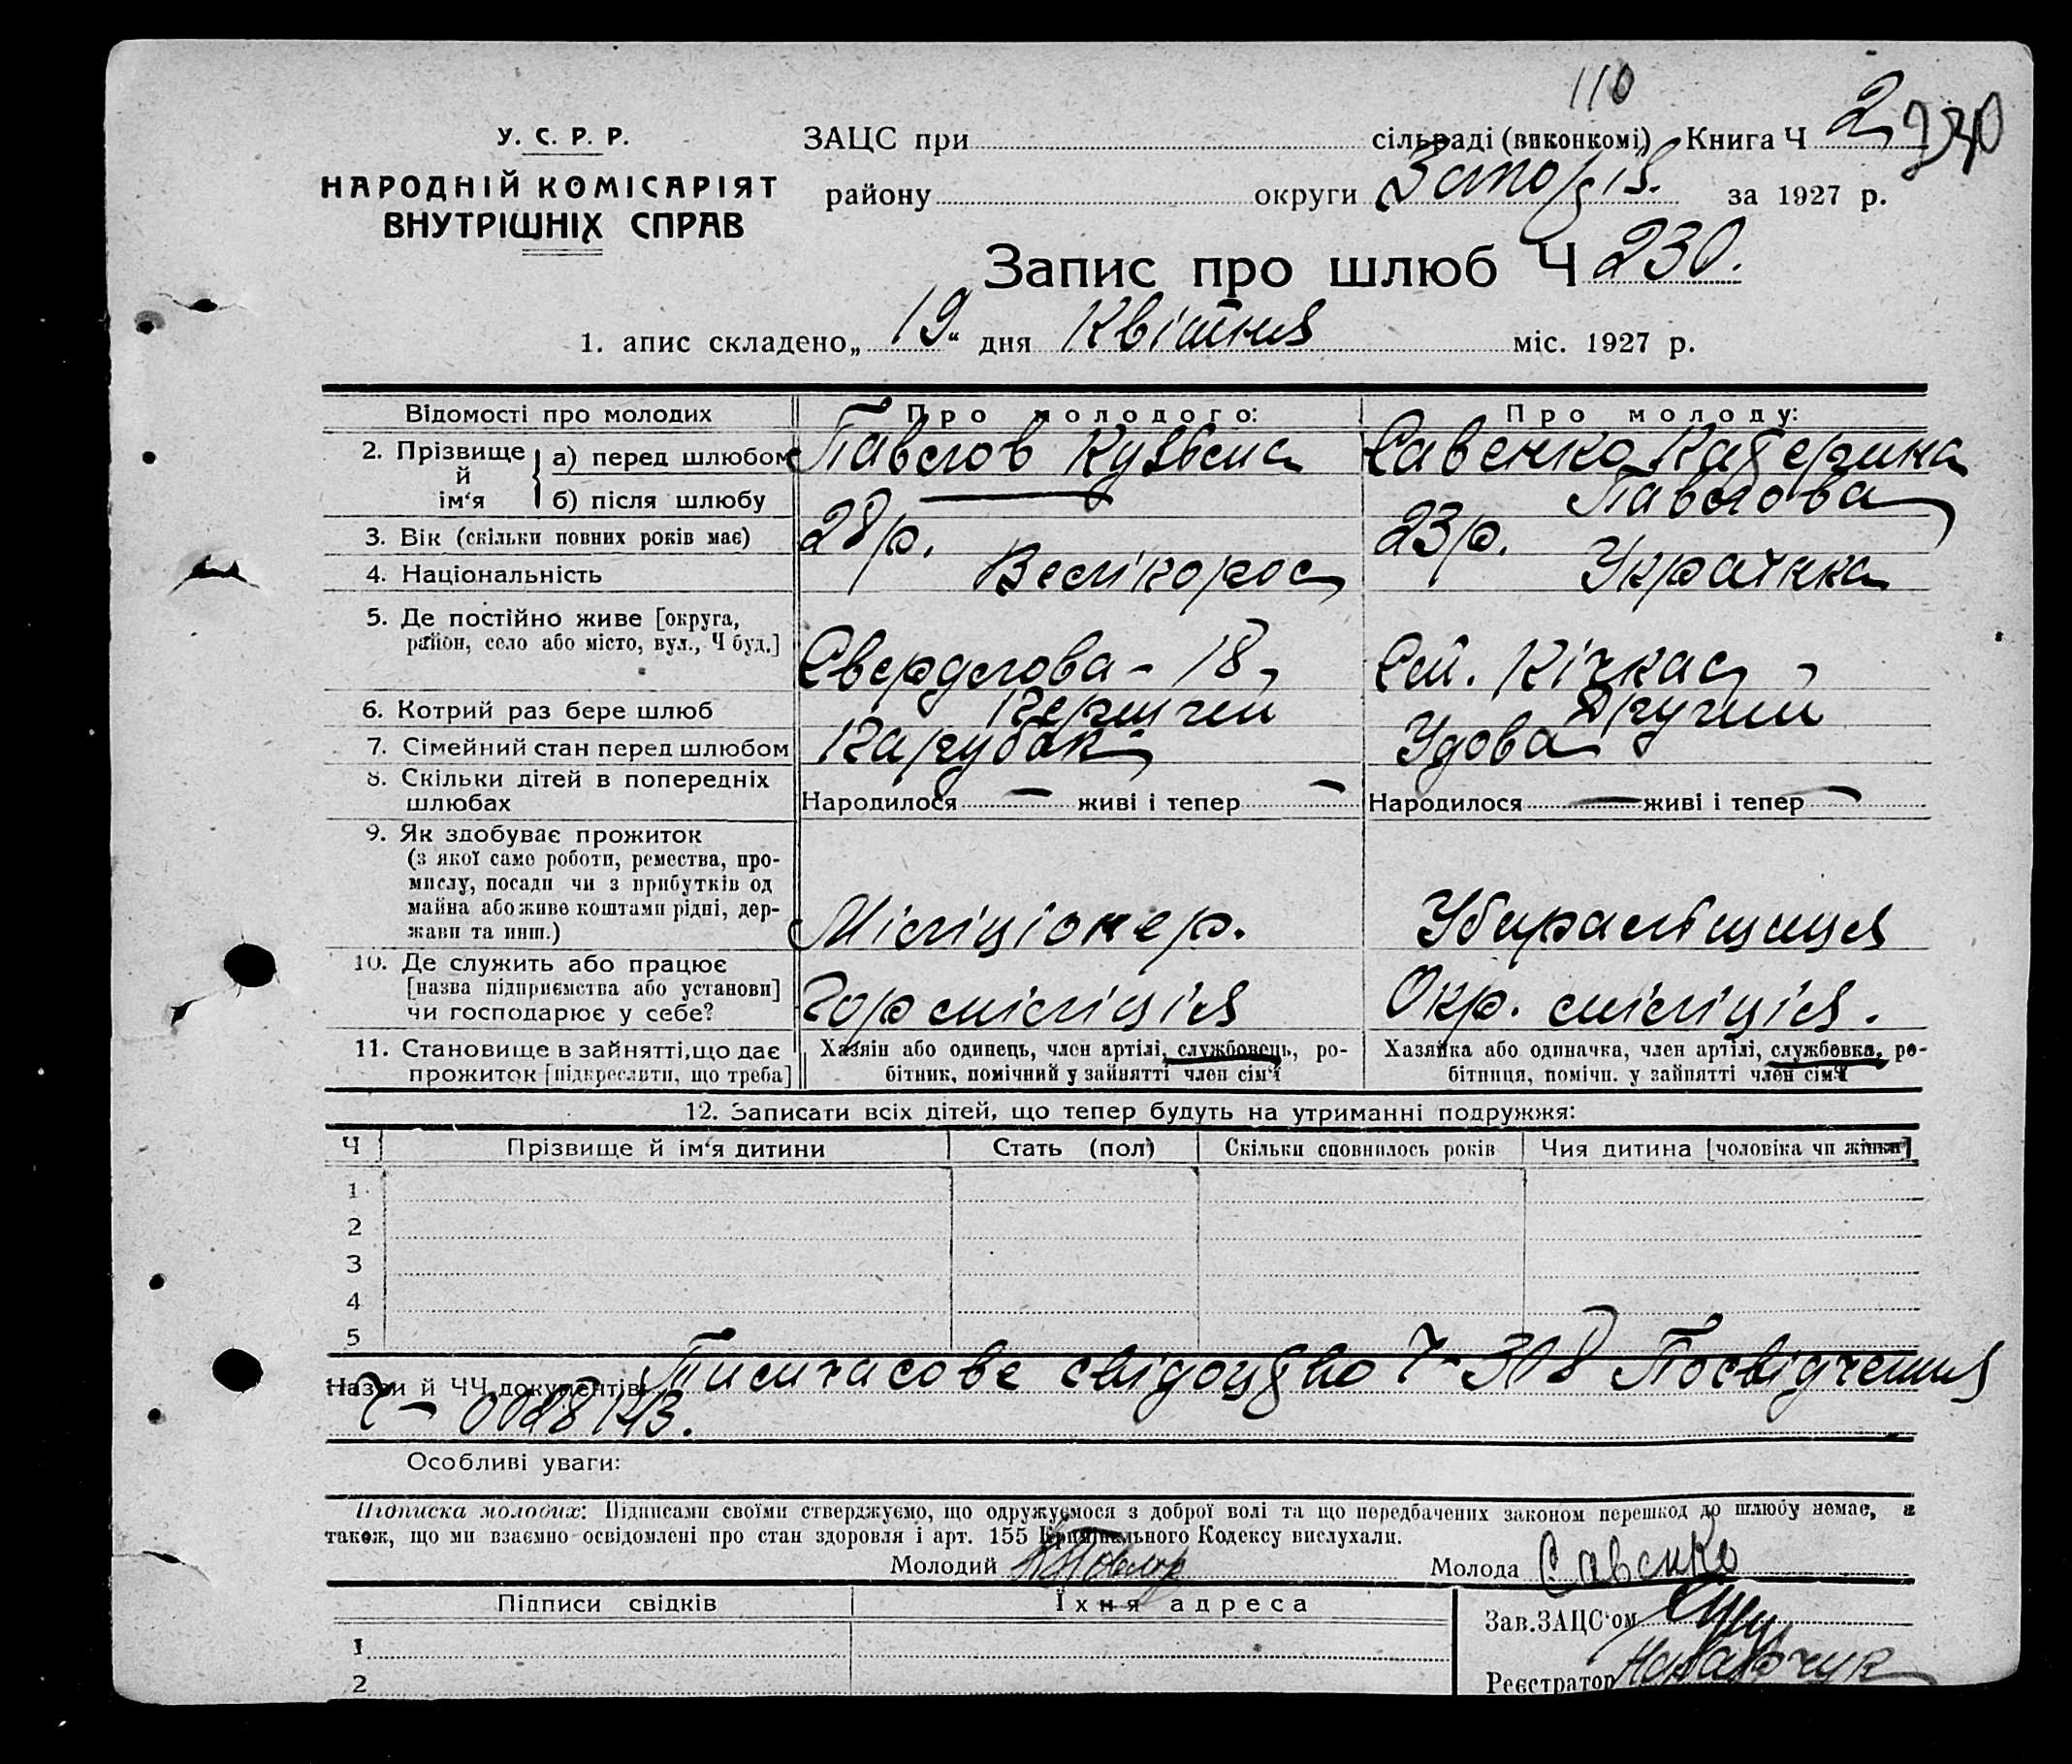 110
У. С. Р. Р.
НАРОДНІЙ КОМІСАРІЯТ
ВНУТРІШНІХ СПРАВ
ЗАЦС при сільраді (виконкомі) Книга Ч 2 230
району округи Запоріз. за 1927 р.
Запис про шлюб Ч 230.
1. апис складено „19“ дня Квітня міс. 1927 р.
Відомості про молодих Про молодого: Про молоду:
2. Прізвище й ім‘я а) перед шлюбом Павлов Кузьма Савенко Катерина
б) після шлюбу Павлова
3. Вік (скільки повних років має) 28 р. 23 р.
4. Національність Велікорос Українка
5. Де постійно живе [округа,
район, село або місто, вул., Ч буд.] Свердлова - 18 Кічкас
6. Котрий раз бере шлюб Перший Другий
7. Сімейний стан перед шлюбом Парубок Удова
8. Скільки дітей в попередніх
шлюбах Народилося — живі і тепер — Народилося — живі і тепер —
9. Як здобуває прожиток
(з якої саме роботи, ремества, про-
мислу, посади чи з прибутків од
майна або живе коштами рідні, дер-
жави та инш.) Міліціонер. Убиральщиця
10. Де служить або працює
[назва підприємства або установи]
чи господарює у себе? Гормілиція Окр. міліція.
11. Становище в зайнятті, що дає
прожиток [підкреслити, що треба]
Хазяїн або одинець, член артілі, службовець, ро-
бітник, помічний у зайнятті член сім‘ї
Хазяйка або одиначка, член артілі, службовка, ро-
бітниця, помічн. у зайнятті член сім‘ї
12. Записати всіх дітей, що тепер будуть на утриманні подружжя:
Ч Прізвище й ім‘я дитини Стать (пол) Скільки сповнилось років Чия дитина [чоловіка чи жінки]
1
2
3
4
5
Назви й ЧЧ документів: Тимчасове свідоцтво Ч- 308 Посвідчення
Ч-
Особливі уваги:
Підписка молодих: Підписами своїми стверджуємо, що одружуємося з доброї волі та що передбачених законом перешкод до шлюбу немає, а
також, що ми взаємно освідомлені про стан здоровля і арт. 155 Кримінального Кодексу вислухали.
Молодий Молода Савенко
Підписи свідків Їхня адреса
Зав. ЗАЦС‘ом
1
Реєстратор
2